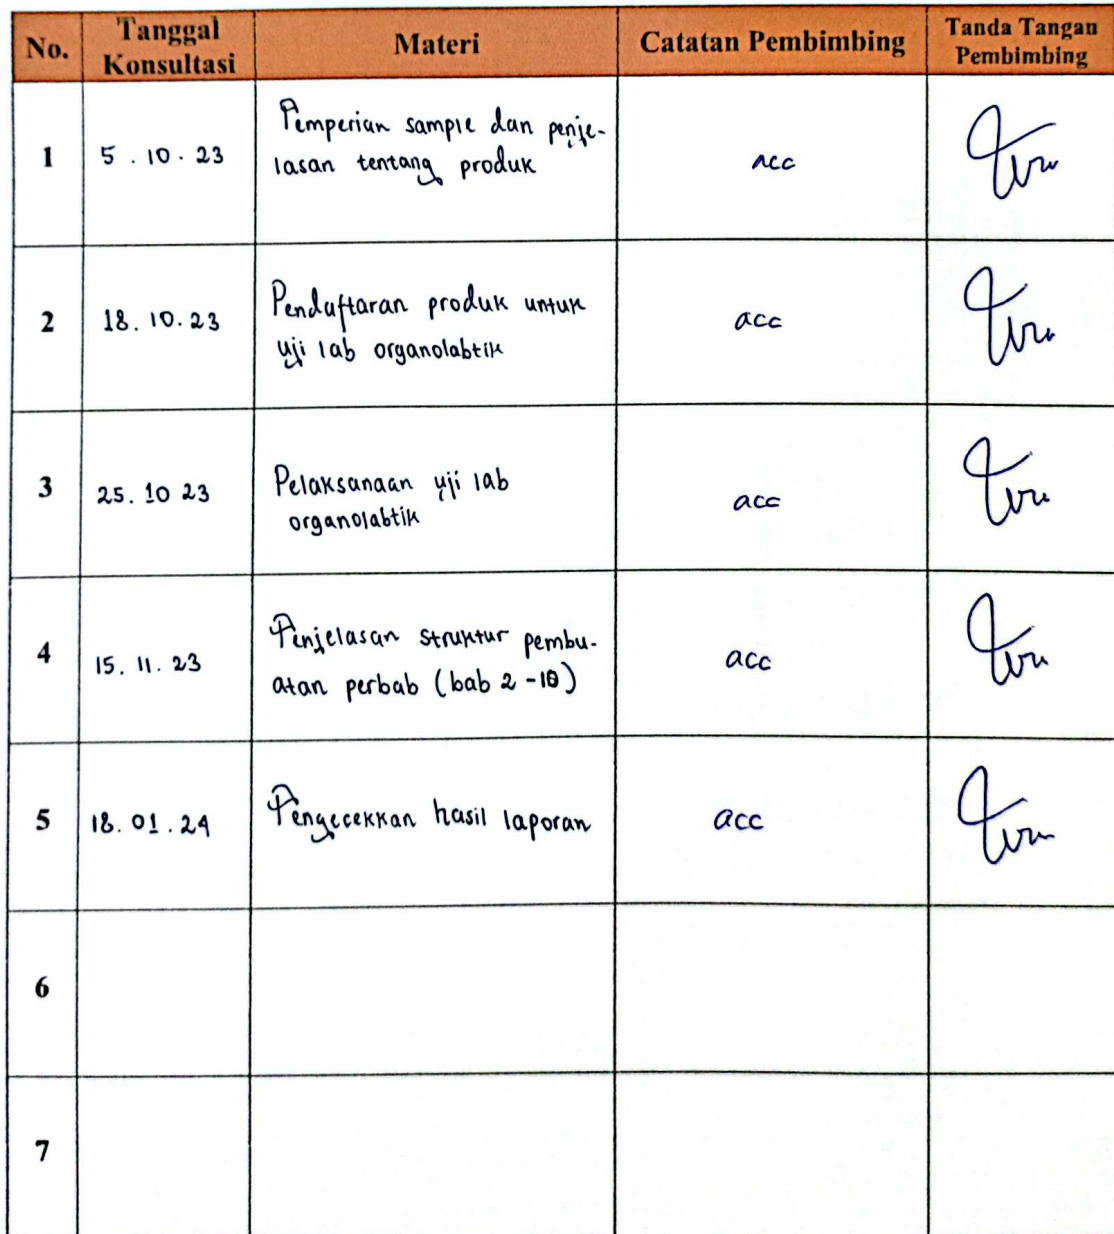 No. Tanggal Konsultasi Materi Catatan Pembimbing Tanda Tangan Pembimbing
1 5.10.23 Pemperian sample dan penje-
lasan tentang produk acc
2 18.10.23 Pendaftaran produk untuk
uji lab organolabtik acc
3 25.10 23 Pelaksanaan uji lab
organolabtik acc
4 15.11.23 Penjelasan struktur pembu-
atan perbab (bab 2-10) acc
5 18.01.24 Pengecekkan hasil laporan acc
6
7